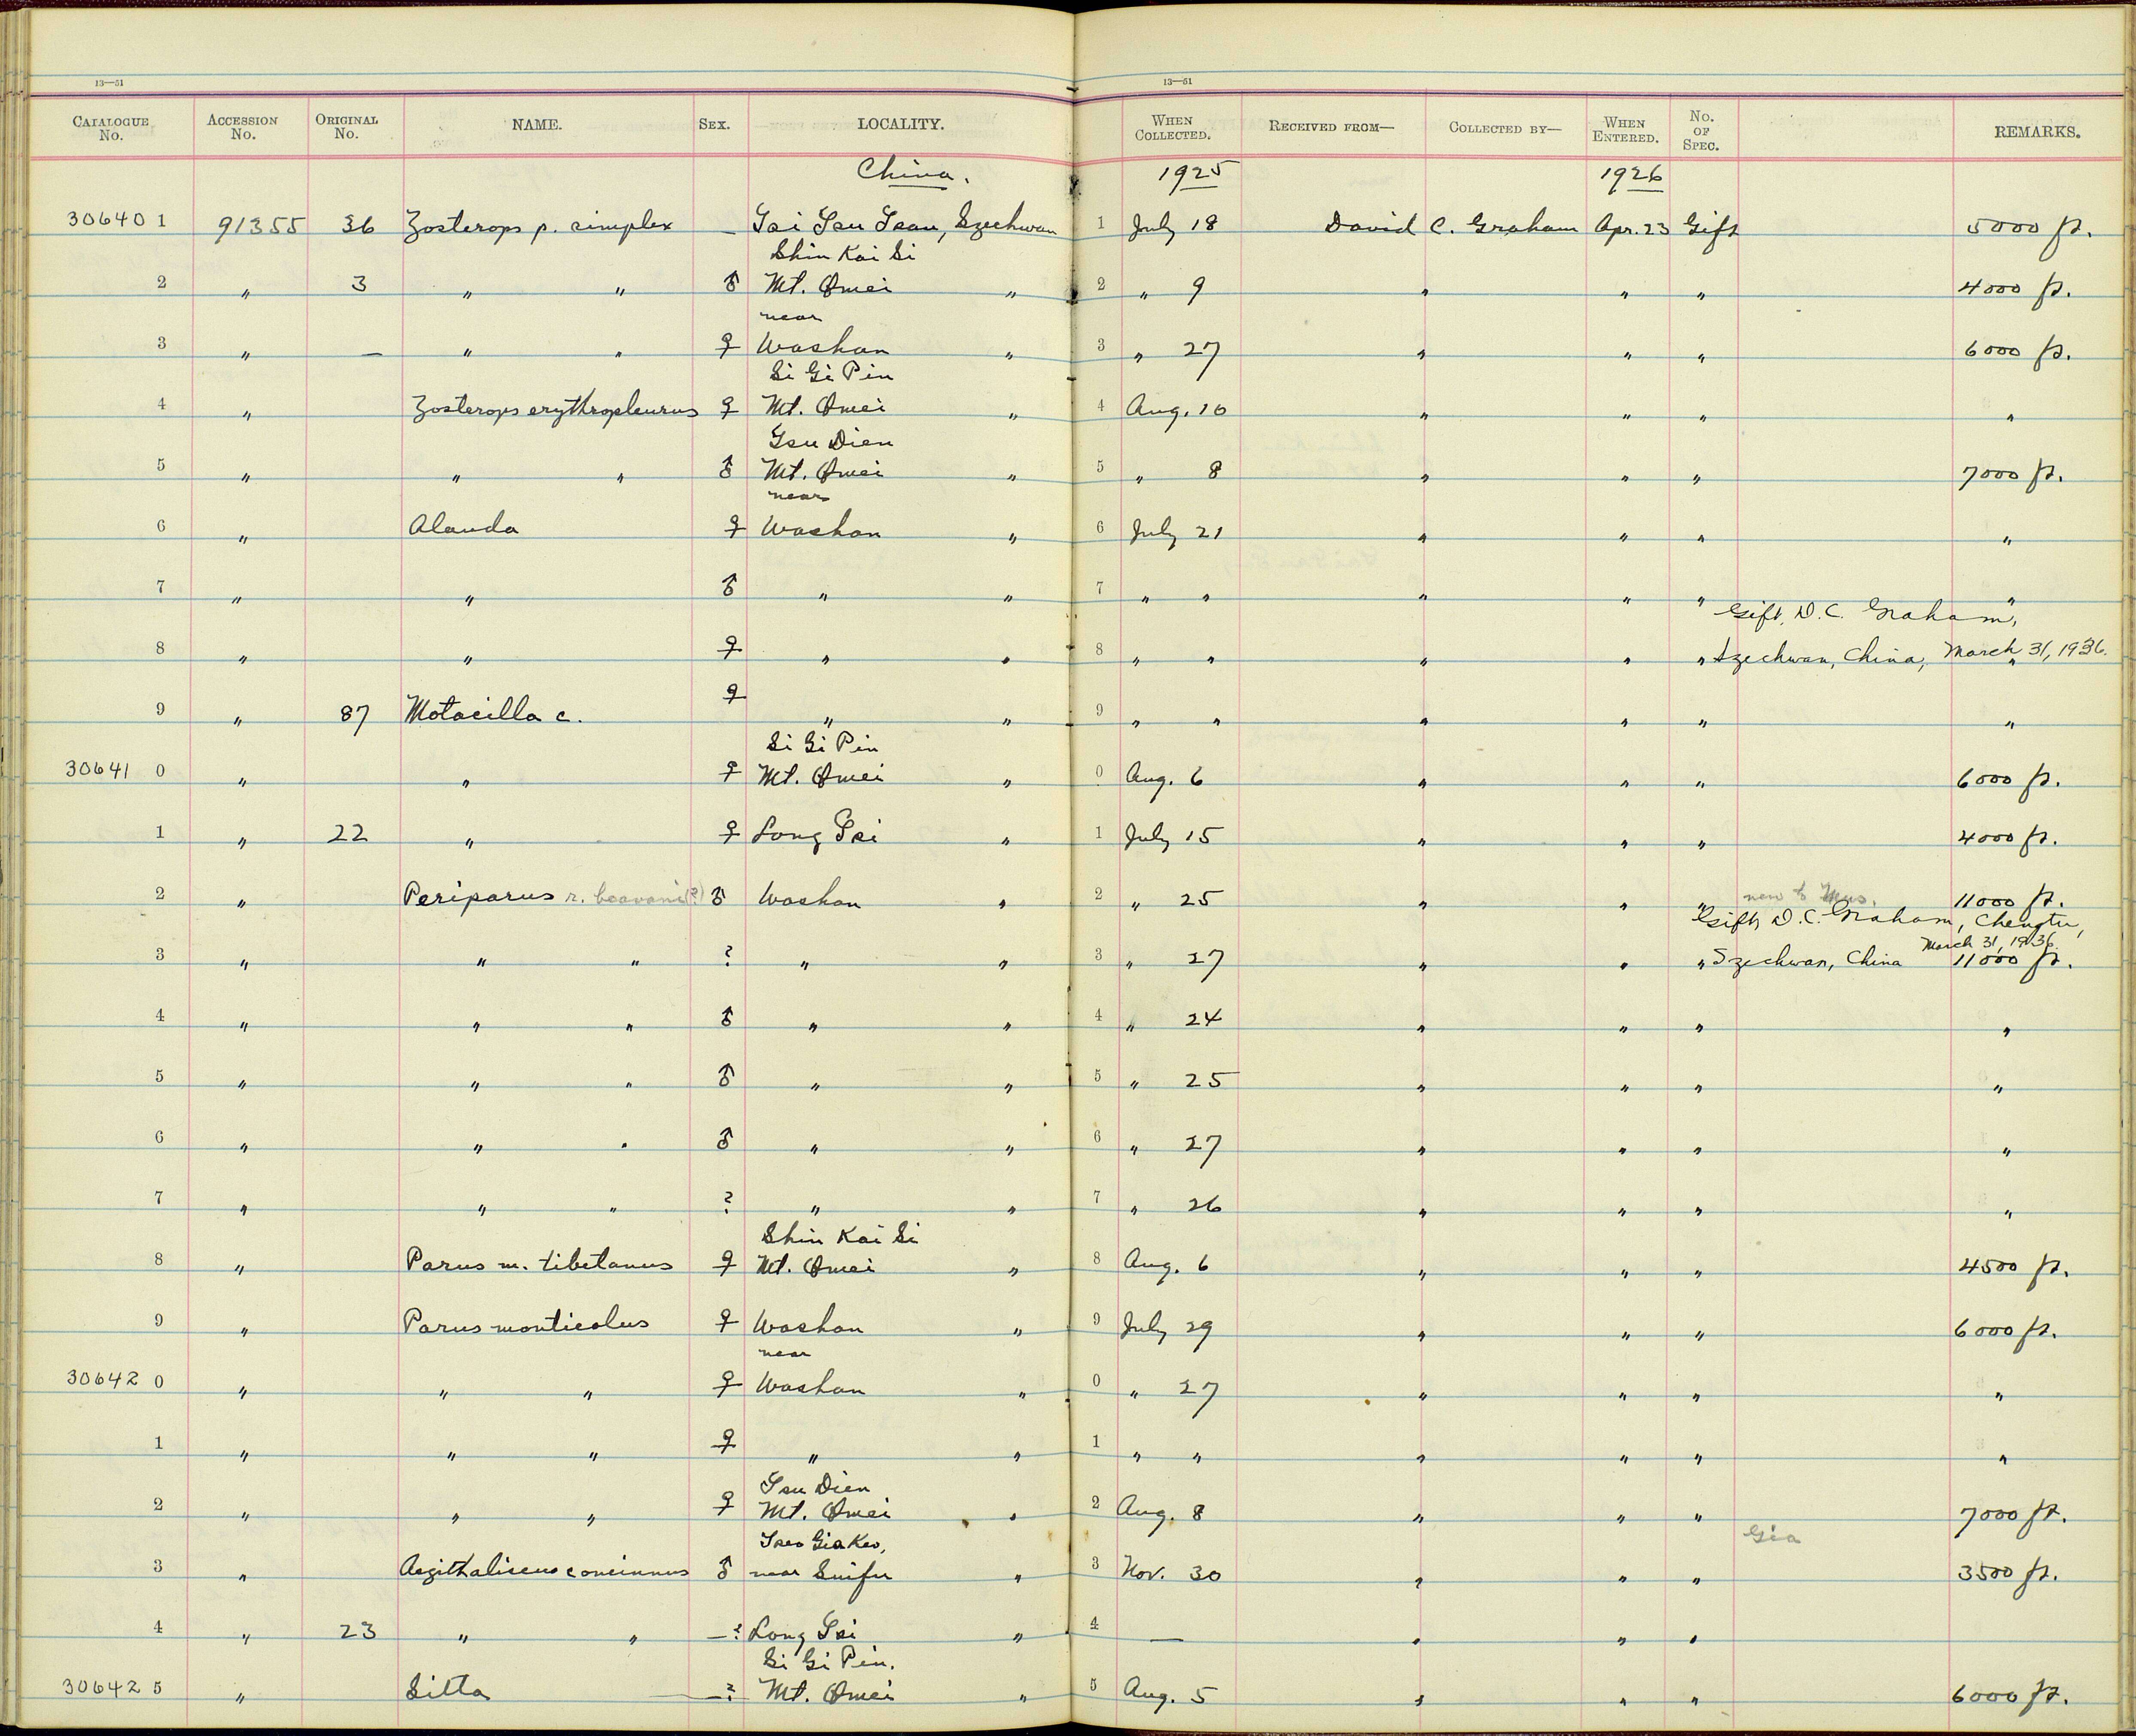 13—51 13—51
CATALOGUE No. ACCESSION No. ORIGINAL No. NAME. SEX. LOCALITY. WHEN COLLECTED. RECEIVED FROM— COLLECTED BY— WHEN ENTERED. No. OF SPEC. REMARKS.
China. 1925 1926
306401 91355 36 Zosterops p. simplex — Tsi Tsu Tsan, Szechwan 1 July 18 David C. Graham Apr. 23 Gift 5000 ft.
Shin Kai Si
2 " 3 " " ♂ Mt. Omei " 2 " 9 " " " 4000 ft.
near
3 " — " " ♀ Washan " 3 " 27 " " " 6000 ft.
Si Gi Pin
4 " Zosterops erythropleurus ♀ Mt. Omei " 4 Aug. 10 " " " "
Tsu Dien
5 " " " ♂ Mt. Omei " 5 " 8 " " " 7000 ft.
near
6 " Alauda ♀ Washan " 6 July 21 " " " "
7 " " ♂ " " 7 " " " " " "
Gift, D. C. Graham,
8 " " ♀ " " 8 " " " " " Szechwan, China, March 31, 1936. "
9 " 87 Motacilla c. ♀ " " 9 " " " " " "
Si Gi Pin
30641 0 " " ♀ Mt. Omei " 0 Aug. 6 " " " 6000 ft.
1 " 22 " ♀ Long Tsi " 1 July 15 " " " 4000 ft.
2 " Periparus r. beavani(?) ♂ Washan " 2 " 25 " " " new to Mus. 11000 ft.
Gift, D. C. Graham, Chengtu,
March 31, 1936.
3 " " " ? " " 3 " 27 " " " Szechwan, China 11000 ft.
4 " " " ♂ " " 4 " 24 " " " "
5 " " " ♂ " " 5 " 25 " " " "
6 " " " ♂ " " 6 " 27 " " " "
7 " " " ? " " 7 " 26 " " " "
Shin Kai Si
8 " Parus m. tibetanus ♀ Mt. Omei " 8 Aug. 6 " " " 4500 ft.
9 " Parus monticolus ♀ Washan " 9 July 29 " " " 6000 ft.
near
30642 0 " " " ♀ Washan " 0 " 27 " " " "
1 " " " ♀ " " 1 " " " " " "
Tsu Dien
2 " " " ♀ Mt. Omei " 2 Aug. 8 " " " 7000 ft.
Gia Keo, Gia
3 " Aegithaliscus concinnus ♂ near Suifu " 3 Nov. 30 " " " 3500 ft.
4 " 23 " " —? Long Tsi " 4 — " " "
Si Gi Pin.
30642 5 " Sitta —? Mt. Omei " 5 Aug. 5 " " " 6000 ft.